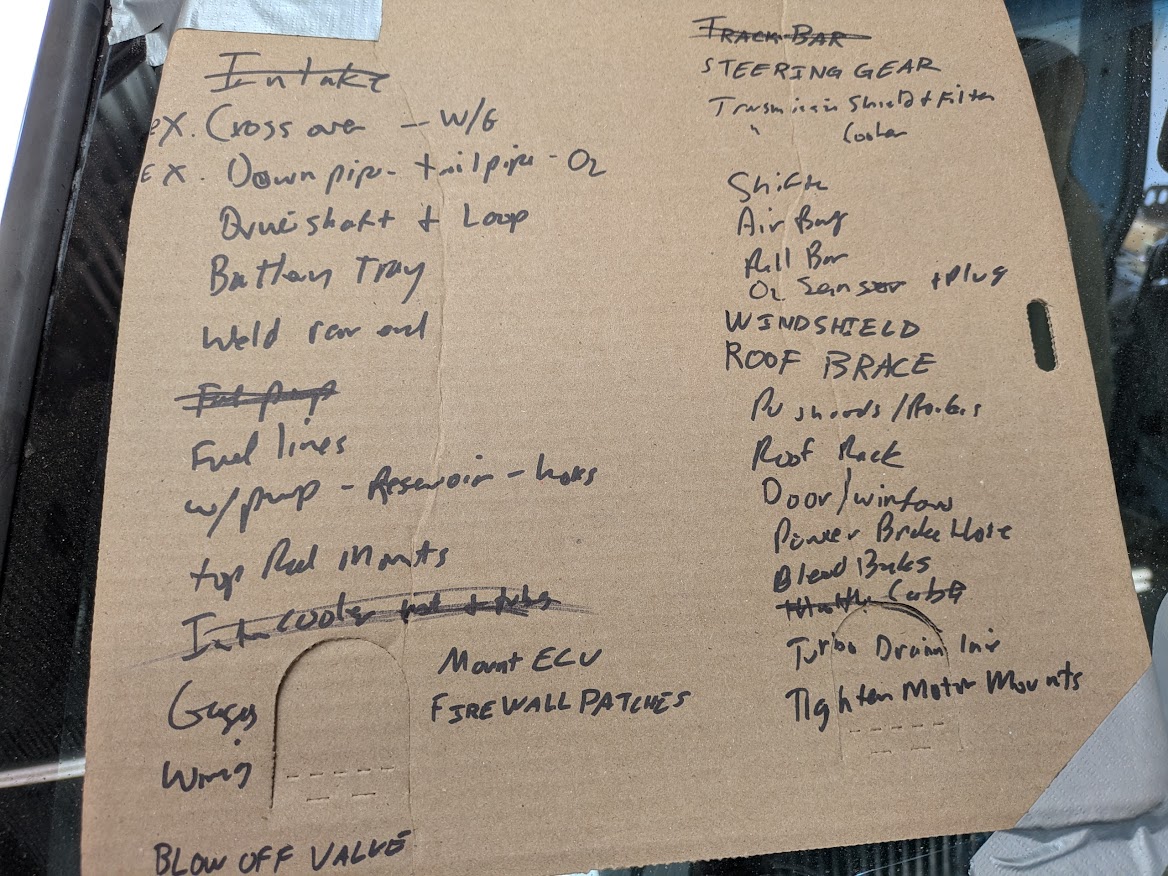 Intake
EX. Cross over - W/G
EX. Down pipe - tailpipe - O2
Driveshaft + Loop
Battery Tray
Weld rear end
Fuel pump
Fuel lines
w/pump - Reservoir - hoses
top Rad Mounts
Intercooler + tubes
Gages
Wiring
BLOW OFF VALVE
Mount ECU
FIREWALL PATCHES
TRACK BAR
STEERING GEAR
Transmission Shield + Filter
" Cooler
Shifter
Air Bag
Roll Bar
O2 Sensor + plug
WINDSHIELD
ROOF BRACE
Pushrods/Rockers
Roof Rack
Door/window
Power Brake Hose
Bleed Brakes
Throttle Cable
Turbo Drain line
Tighten Motor Mounts